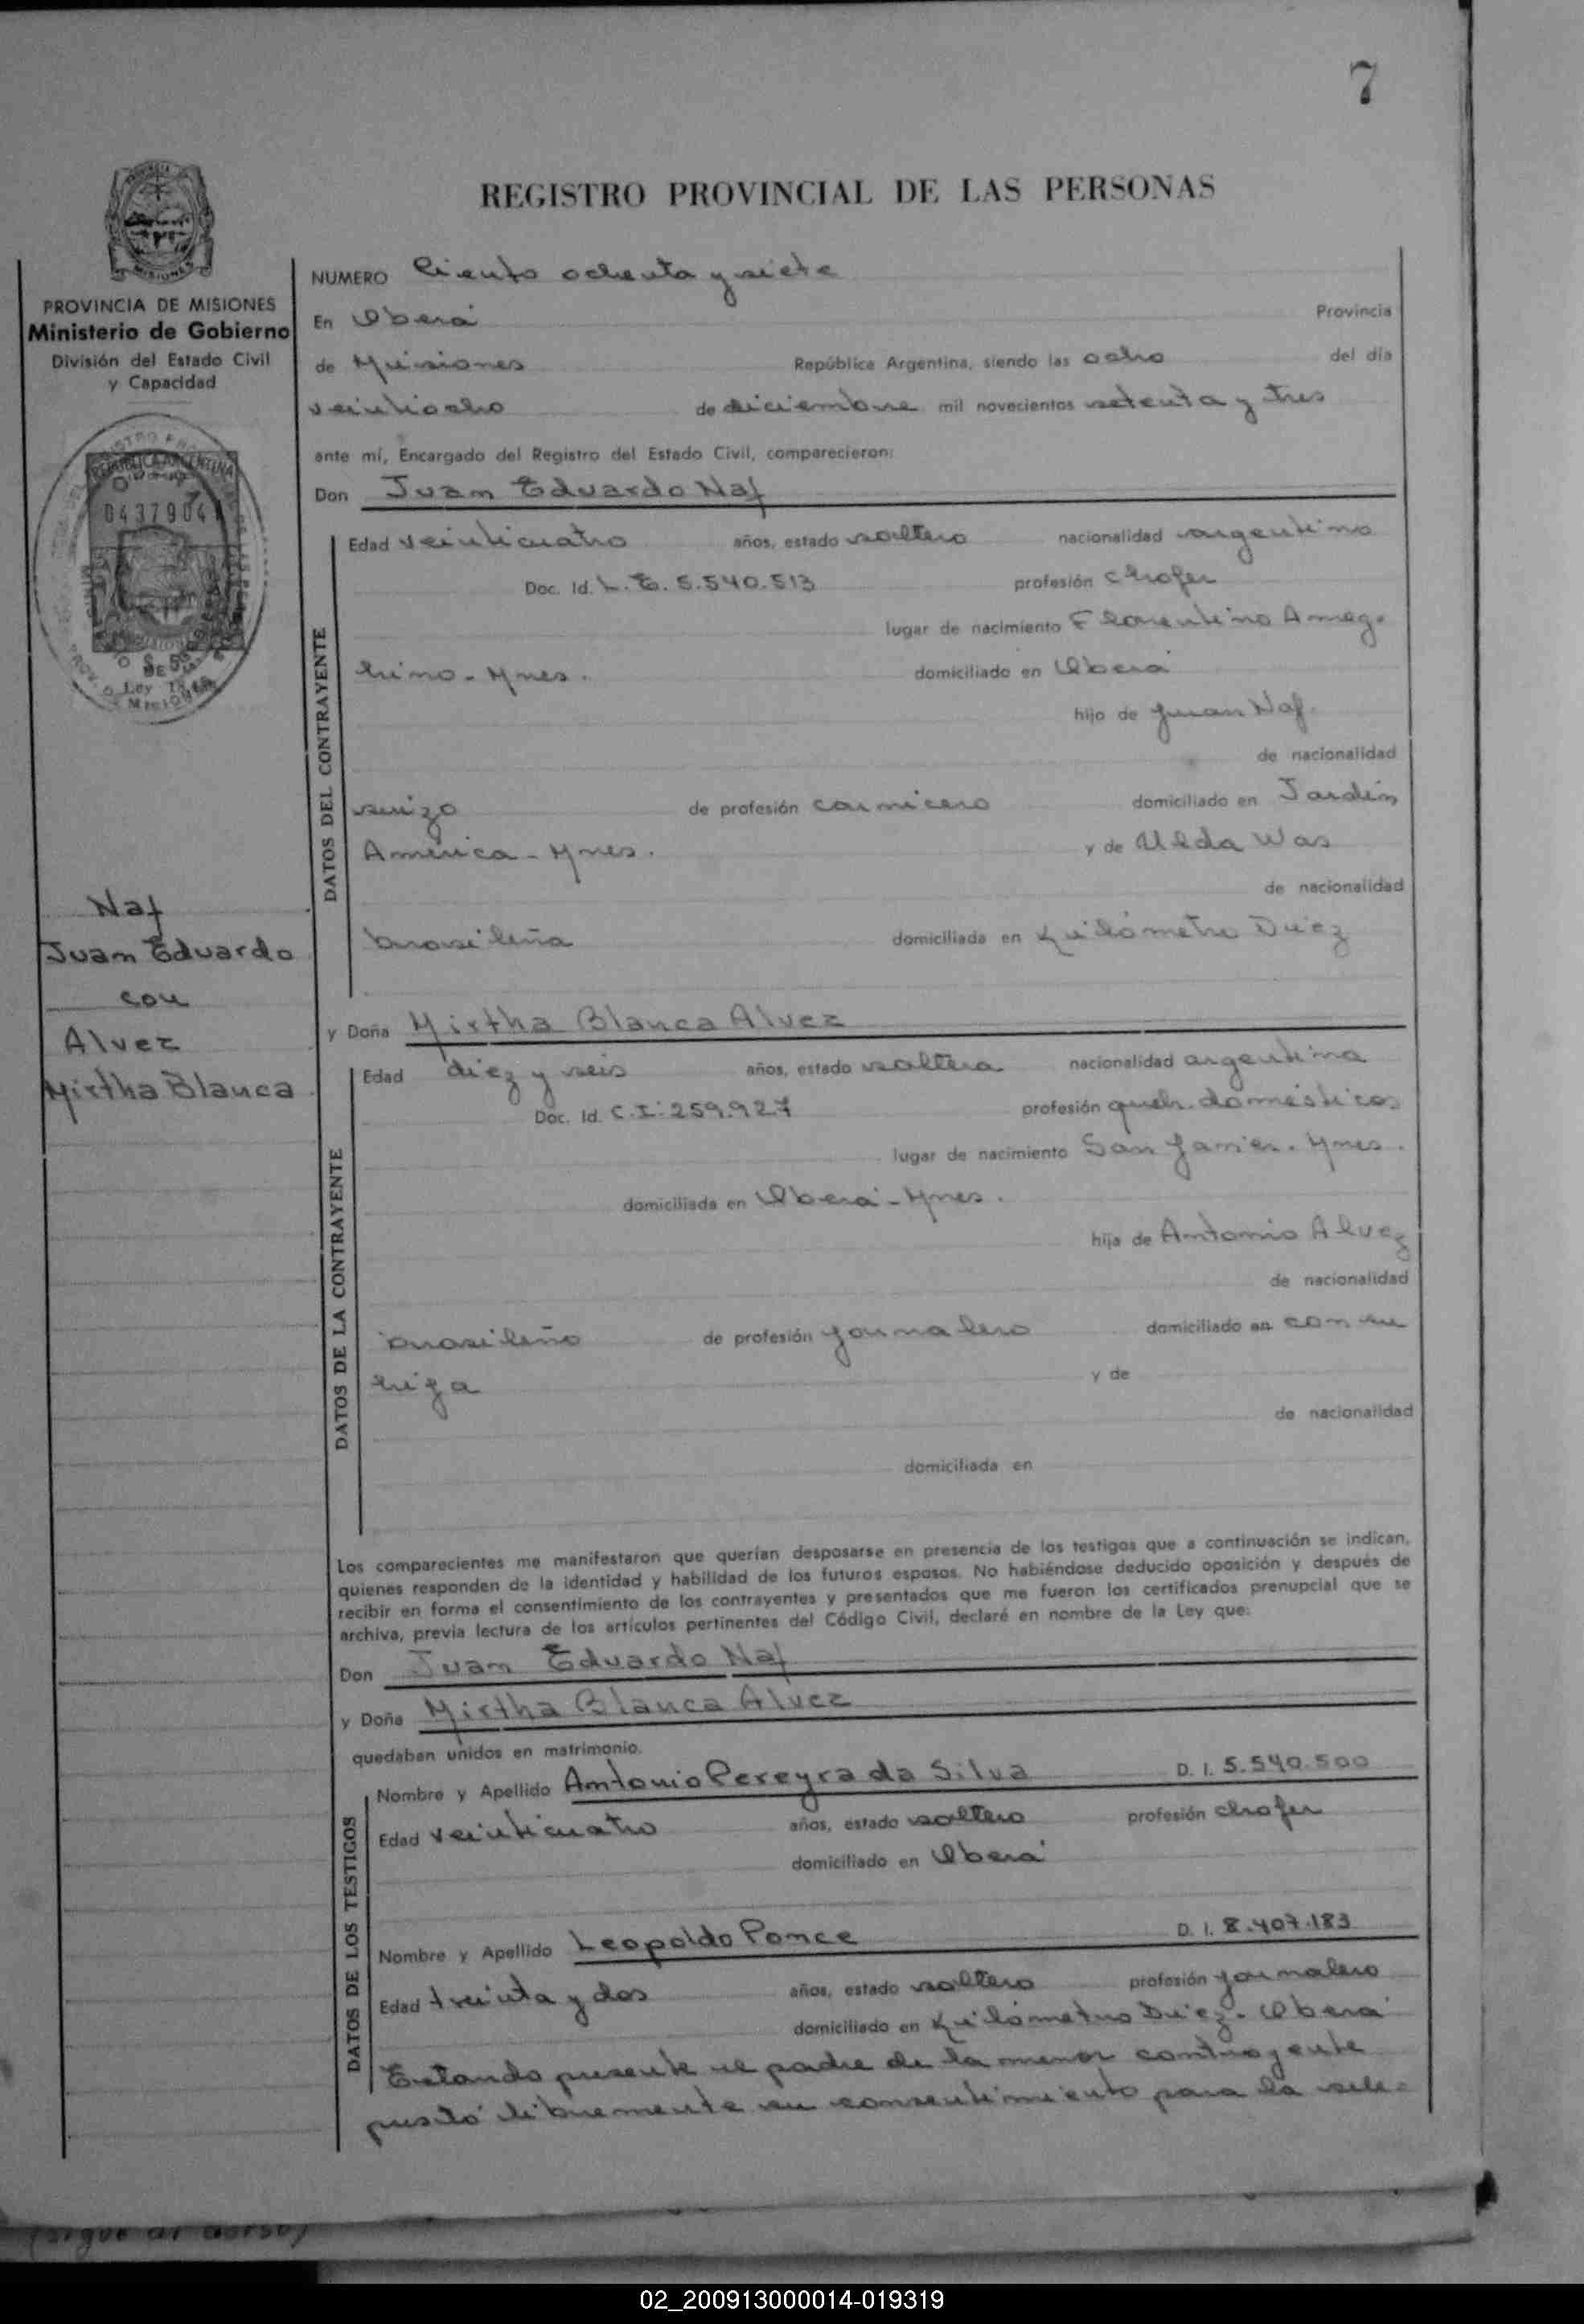 7
REGISTRO PROVINCIAL DE LAS PERSONAS
PROVINCIA DE MISIONES
Ministerio de Gobierno
División del Estado Civil
y Capacidad
REPUBLICA ARGENTINA
04379041
Ley
Naf
Juan Eduardo
con
Alvez
Mirtha Blanca
NUMERO Ciento ochenta y siete
En Oberá Provincia
de Misiones República Argentina, siendo las ocho del día
veintiocho de diciembre mil novecientos setenta y tres
ante mí, Encargado del Registro del Estado Civil, comparecieron:
Don Juan Eduardo Naf
DATOS DEL CONTRAYENTE
Edad veinticuatro años, estado soltero nacionalidad argentino
Doc. Id. L. E. 5.540.513 profesión chofer
lugar de nacimiento Florentino Ameg-
hino - Mnes. domiciliado en Oberá
hijo de Juan Naf.
de nacionalidad
suizo de profesión carnicero domiciliado en Jardín
América - Mnes. y de Ulda Was
de nacionalidad
brasileña domiciliada en Kilómetro Diez
y Doña Mirtha Blanca Alvez
DATOS DE LA CONTRAYENTE
Edad diez y seis años, estado soltera nacionalidad argentina
Doc. Id. C.I: 259.927 profesión queh. domésticos
lugar de nacimiento San Javier. Mnes.
domiciliada en Oberá - Mnes.
hija de Antonio Alvez
de nacionalidad
brasileño de profesión jornalero domiciliado en con su
hija y de
de nacionalidad
domiciliada en
Los comparecientes me manifestaron que querían desposarse en presencia de los testigos que a continuación se indican,
quienes responden de la identidad y habilidad de los futuros esposos. No habiéndose deducido oposición y después de
recibir en forma el consentimiento de los contrayentes y presentados que me fueron los certificados prenupcial que se
archiva, previa lectura de los artículos pertinentes del Código Civil, declaré en nombre de la Ley que:
Don Juan Eduardo Naf
y Doña Mirtha Blanca Alvez
quedaban unidos en matrimonio.
DATOS DE LOS TESTIGOS
Nombre y Apellido Antonio Pereyra da Silva D. I. 5.540.500
Edad veinticuatro años, estado soltero profesión chofer
domiciliado en Oberá
Nombre y Apellido Leopoldo Ponce D. I. 8.407.183
Edad treinta y dos años, estado soltero profesión jornalero
domiciliado en Kilómetro Diez - Oberá
Estando presente el padre de la menor contrayente
prestó libremente su consentimiento para la cele-
(sigue al dorso)
02_200913000014-019319